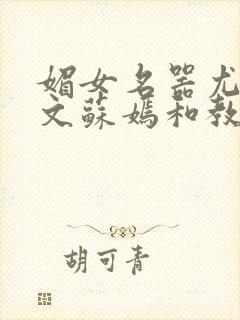 媚女名器尤
文蘇媽和教
胡可青